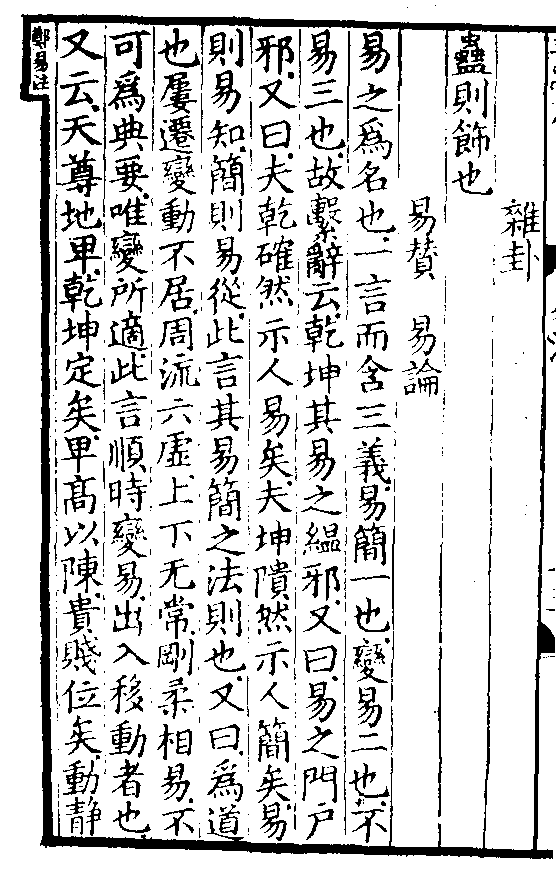 雜卦
蠱則飾也
易賛 易論
易之爲名也一言而含三義易簡一也變易二也不
易三也故繫辭云乾坤其易之緼邪又曰易之門戶
邪又曰夫乾確然示人易矣夫坤隤然示人簡矣易
則易知簡則易從此言其易簡之法則也又曰爲道
也屢遷變動不居周流六虛上下无常剛柔相易不
可爲典要唯變所適此言順時變易出入移動者也
又云天尊地卑乾坤定矣卑高以陳貴賤位矣動靜
鄭易注